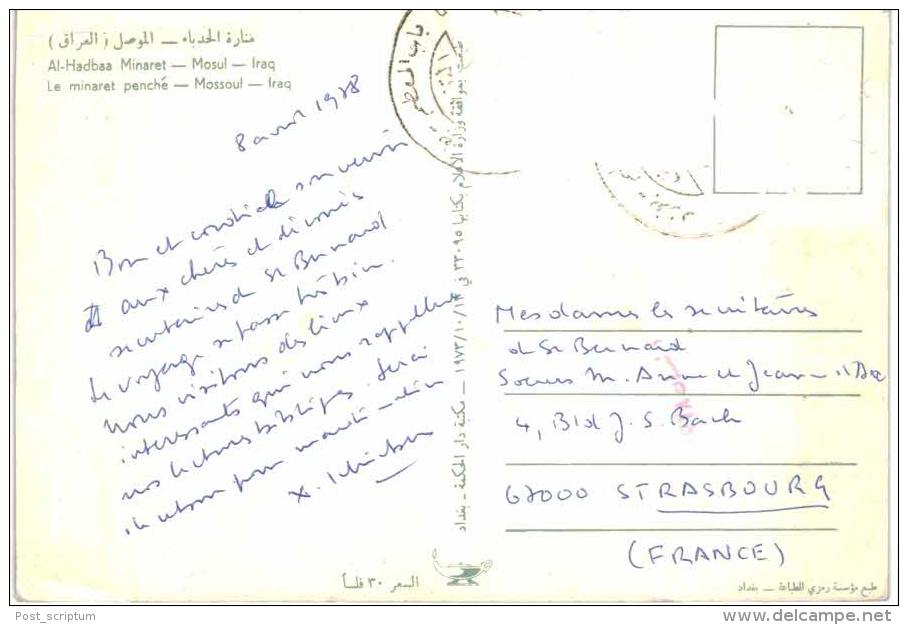 منارة الحدباء — الموصل (العراق)
Al-Hadbaa Minaret — Mosul — Iraq
Le minaret penché — Mossoul — Iraq
باب المعظم
8 avril 1978
Bon et cordial souvenir
aux chères et dévouées
secrétaires de St Bernard
Le voyage se passe très bien.
nous visitons des lieux
interessants qui nous rappellent
nos lectures bibliques. Serai
de retour pour
طبعت بموافقة وزارة الاعلام بكتابها ٣٣٠٩٥ في ١٩٧٣/١٠/١٣ — مكتبة دار الحكمة — بغداد
Mesdames les secrétaires
de St Bernard
Soeurs M. Anne et Jeanne
4, Bld J. S. Bach
67000 STRASBOURG
(FRANCE)
السعر ٣٠ فلساً
طبع مؤسسة رمزي للطباعة — بغداد
Post_scriptum
delcampe.net